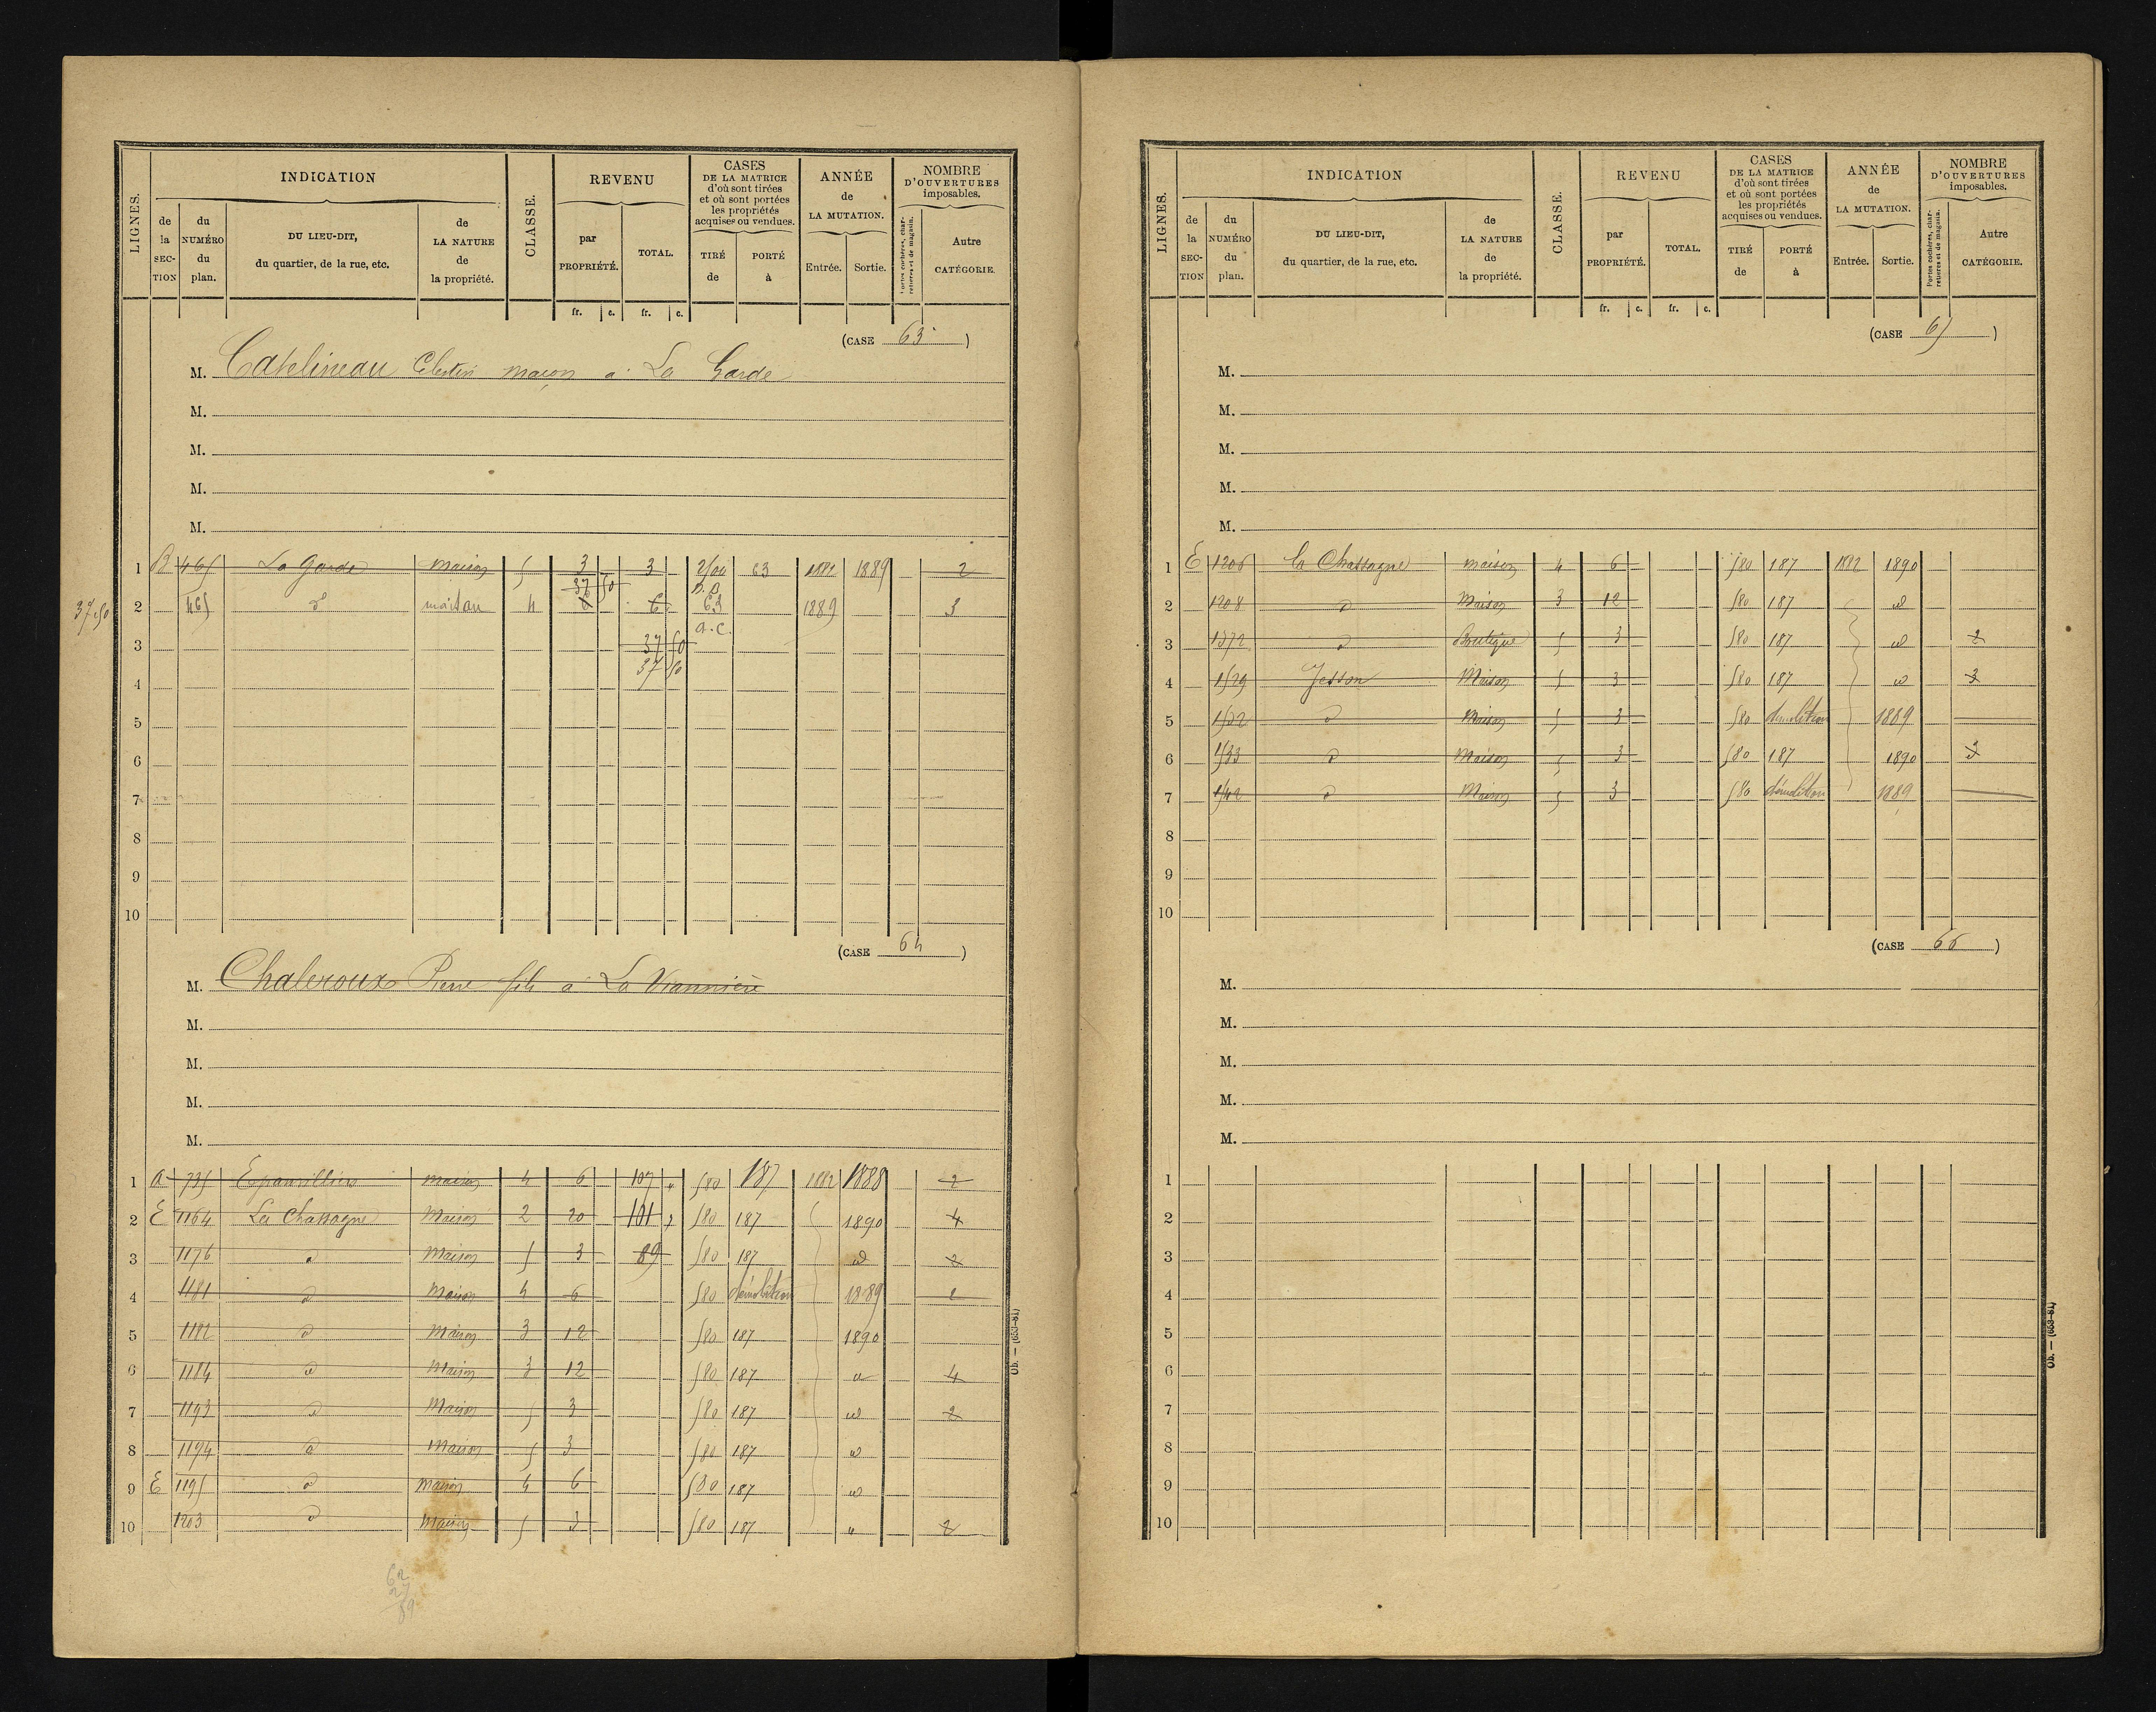 LIGNES.
INDICATION
CLASSE.
REVENU
CASES
DE LA MATRICE
d'où sont tirées
et où sont portées
les propriétés
acquises ou vendues.
ANNÉE
de
LA MUTATION.
NOMBRE
D'OUVERTURES
imposables.
de la SEC-TION
du NUMÉRO du plan.
DU LIEU-DIT,
du quartier, de la rue, etc.
de LA NATURE de la propriété.
par PROPRIÉTÉ.
TOTAL.
TIRÉ de
PORTÉ à
Entrée.
Sortie.
Portes cochères, charretières et de magasin.
Autre CATÉGORIE.
fr. c. fr. c.
(CASE 63)
M. Catelineau Célestin maçon à La Garde
M.
M.
M.
M.
1 B 465 La Garde maison 5 3 3 63 1882 1889 2
37 50
2 465 d maison 4 6 6 63 1889 3
37 50
3 37 50
37 50
4
5
6
7
8
9
10
(CASE 64)
M. Chaleroux Pierre fils à La Viannière
M.
M.
M.
M.
1 A 735 Epanvilliers maison 4 6 107 " 580 187 1882 1888 2
2 E 1164 La Chassagne Maison 2 20 101 " 580 187 1890 4
3 1176 d Maison 5 3 89 580 187 d 2
4 1181 d Maison 4 6 580 démolition 1889 2
5 1182 d Maison 3 12 580 187 1890
6 1184 d Maison 3 12 580 187 d 4
7 1193 d Maison 5 3 580 187 d 2
8 1194 d Maison 5 3 580 187 d
9 E 1195 d maison 4 6 580 187 d
10 1203 d Maison 5 3 580 187 " 2
62
27
89
Ob. — (653-81)
LIGNES.
INDICATION
CLASSE.
REVENU
CASES
DE LA MATRICE
d'où sont tirées
et où sont portées
les propriétés
acquises ou vendues.
ANNÉE
de
LA MUTATION.
NOMBRE
D'OUVERTURES
imposables.
de la SEC-TION
du NUMÉRO du plan.
DU LIEU-DIT,
du quartier, de la rue, etc.
de LA NATURE de la propriété.
par PROPRIÉTÉ.
TOTAL.
TIRÉ de
PORTÉ à
Entrée.
Sortie.
Portes cochères, charretières et de magasin.
Autre CATÉGORIE.
fr. c. fr. c.
(CASE 65)
M.
M.
M.
M.
M.
1 E 1206 la Chassagne maison 4 6 580 187 1882 1890
2 1208 d Maison 3 12 580 187 d
3 1372 d Boutique 5 3 580 187 d 2
4 1529 Jesson Maison 5 3 580 187 d 3
5 1532 d Maison 5 3 580 démolition 1889
6 1533 d Maison 5 3 580 187 1890 3
7 1542 d Maison 5 3 580 démolition 1889
8
9
10
(CASE 66)
M.
M.
M.
M.
M.
1
2
3
4
5
6
7
8
9
10
Ob. — (653-81)